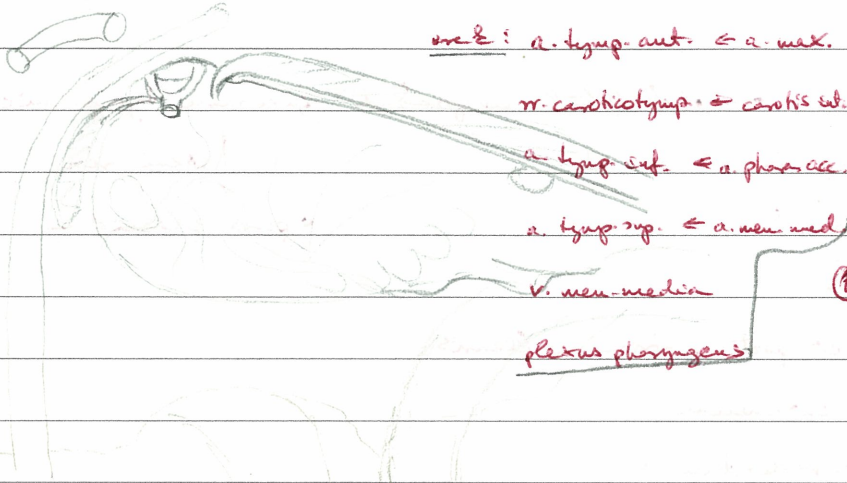 erek : a. tymp. ant. ← a. max.
rr. caroticotymp. ← carotis int.
a. tymp. inf. ← a. phar. asc.
a. tymp. sup. ← a. men. med.
v. men. media
plexus pharyngeus